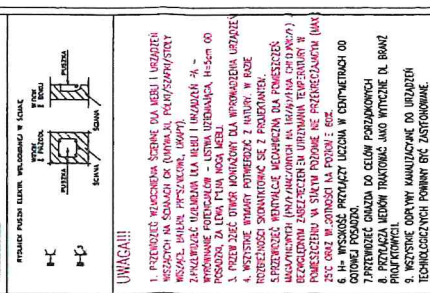 RYSUNEK PUSZKI ELEKTR. WBUDOWANEJ W ŚCIANĘ
WIDOK
Z PRZODU
WIDOK
Z BOKU
PUSZKA
PUSZKA
ŚCIANA
ŚCIANA
UWAGA!!!
1. PRZEWIDZIEĆ WZMOCNIENIA ŚCIENNE DLA MEBLI I URZĄDZEŃ
WISZĄCYCH NA ŚCIANACH GK (UMYWALKI, PÓŁKI/SZAFKI/STOŁY
WISZĄCE, BATERIE PRYSZNICOWE, OKAPY).
2.PRZEWIDZIEĆ UZIEMIENIA DLA MEBLI I URZĄDZEŃ
WYRÓWNANIE POTENCJAŁÓW - LISTWA UZIEMIAJĄCA, H=5cm OD
POSADZKI, ZA LEWĄ TYLNĄ NOGĄ MEBLI.
3. PRZEWIDZIEĆ OTWÓR MONTAŻOWY DLA WPROWADZENIA URZĄDZEŃ
4. WSZYSTKIE WYMIARY POTWIERDZIĆ Z NATURY. W RAZIE
ROZBIEŻNOŚCI SKONTAKTOWAĆ SIĘ Z PROJEKTANTEM.
5.PRZEWIDZIEĆ WENTYLACJĘ MECHANICZNĄ DLA POMIESZCZEŃ
MAGAZYNOWYCH
BEZWZGLĘDNYM ZABEZPIECZENIEM UTRZYMANIA TEMPERATURY W
POMIESZCZENIU NA STAŁYM POZIOMIE NIE PRZEKRACZAJĄCYM (MAX
25°C ORAZ WILGOTNOŚCI NA POZIOMIE 60%.
6. H= WYSOKOŚĆ PRZYŁĄCZY LICZONA W CENTYMETRACH OD
GOTOWEJ POSADZKI.
7.PRZEWIDZIEĆ GNIAZDA DO CELÓW PORZĄDKOWYCH
8. PRZYŁĄCZA MEDIÓW TRAKTOWAĆ JAKO WYTYCZNE DL BRANŻ
PROJEKTOWYCH.
9. WSZYSTKIE ODPŁYWY KANALIZACYJNE DO URZĄDZEŃ
TECHNOLOGICZNYCH POWINNY BYĆ ZASYFONOWANE.